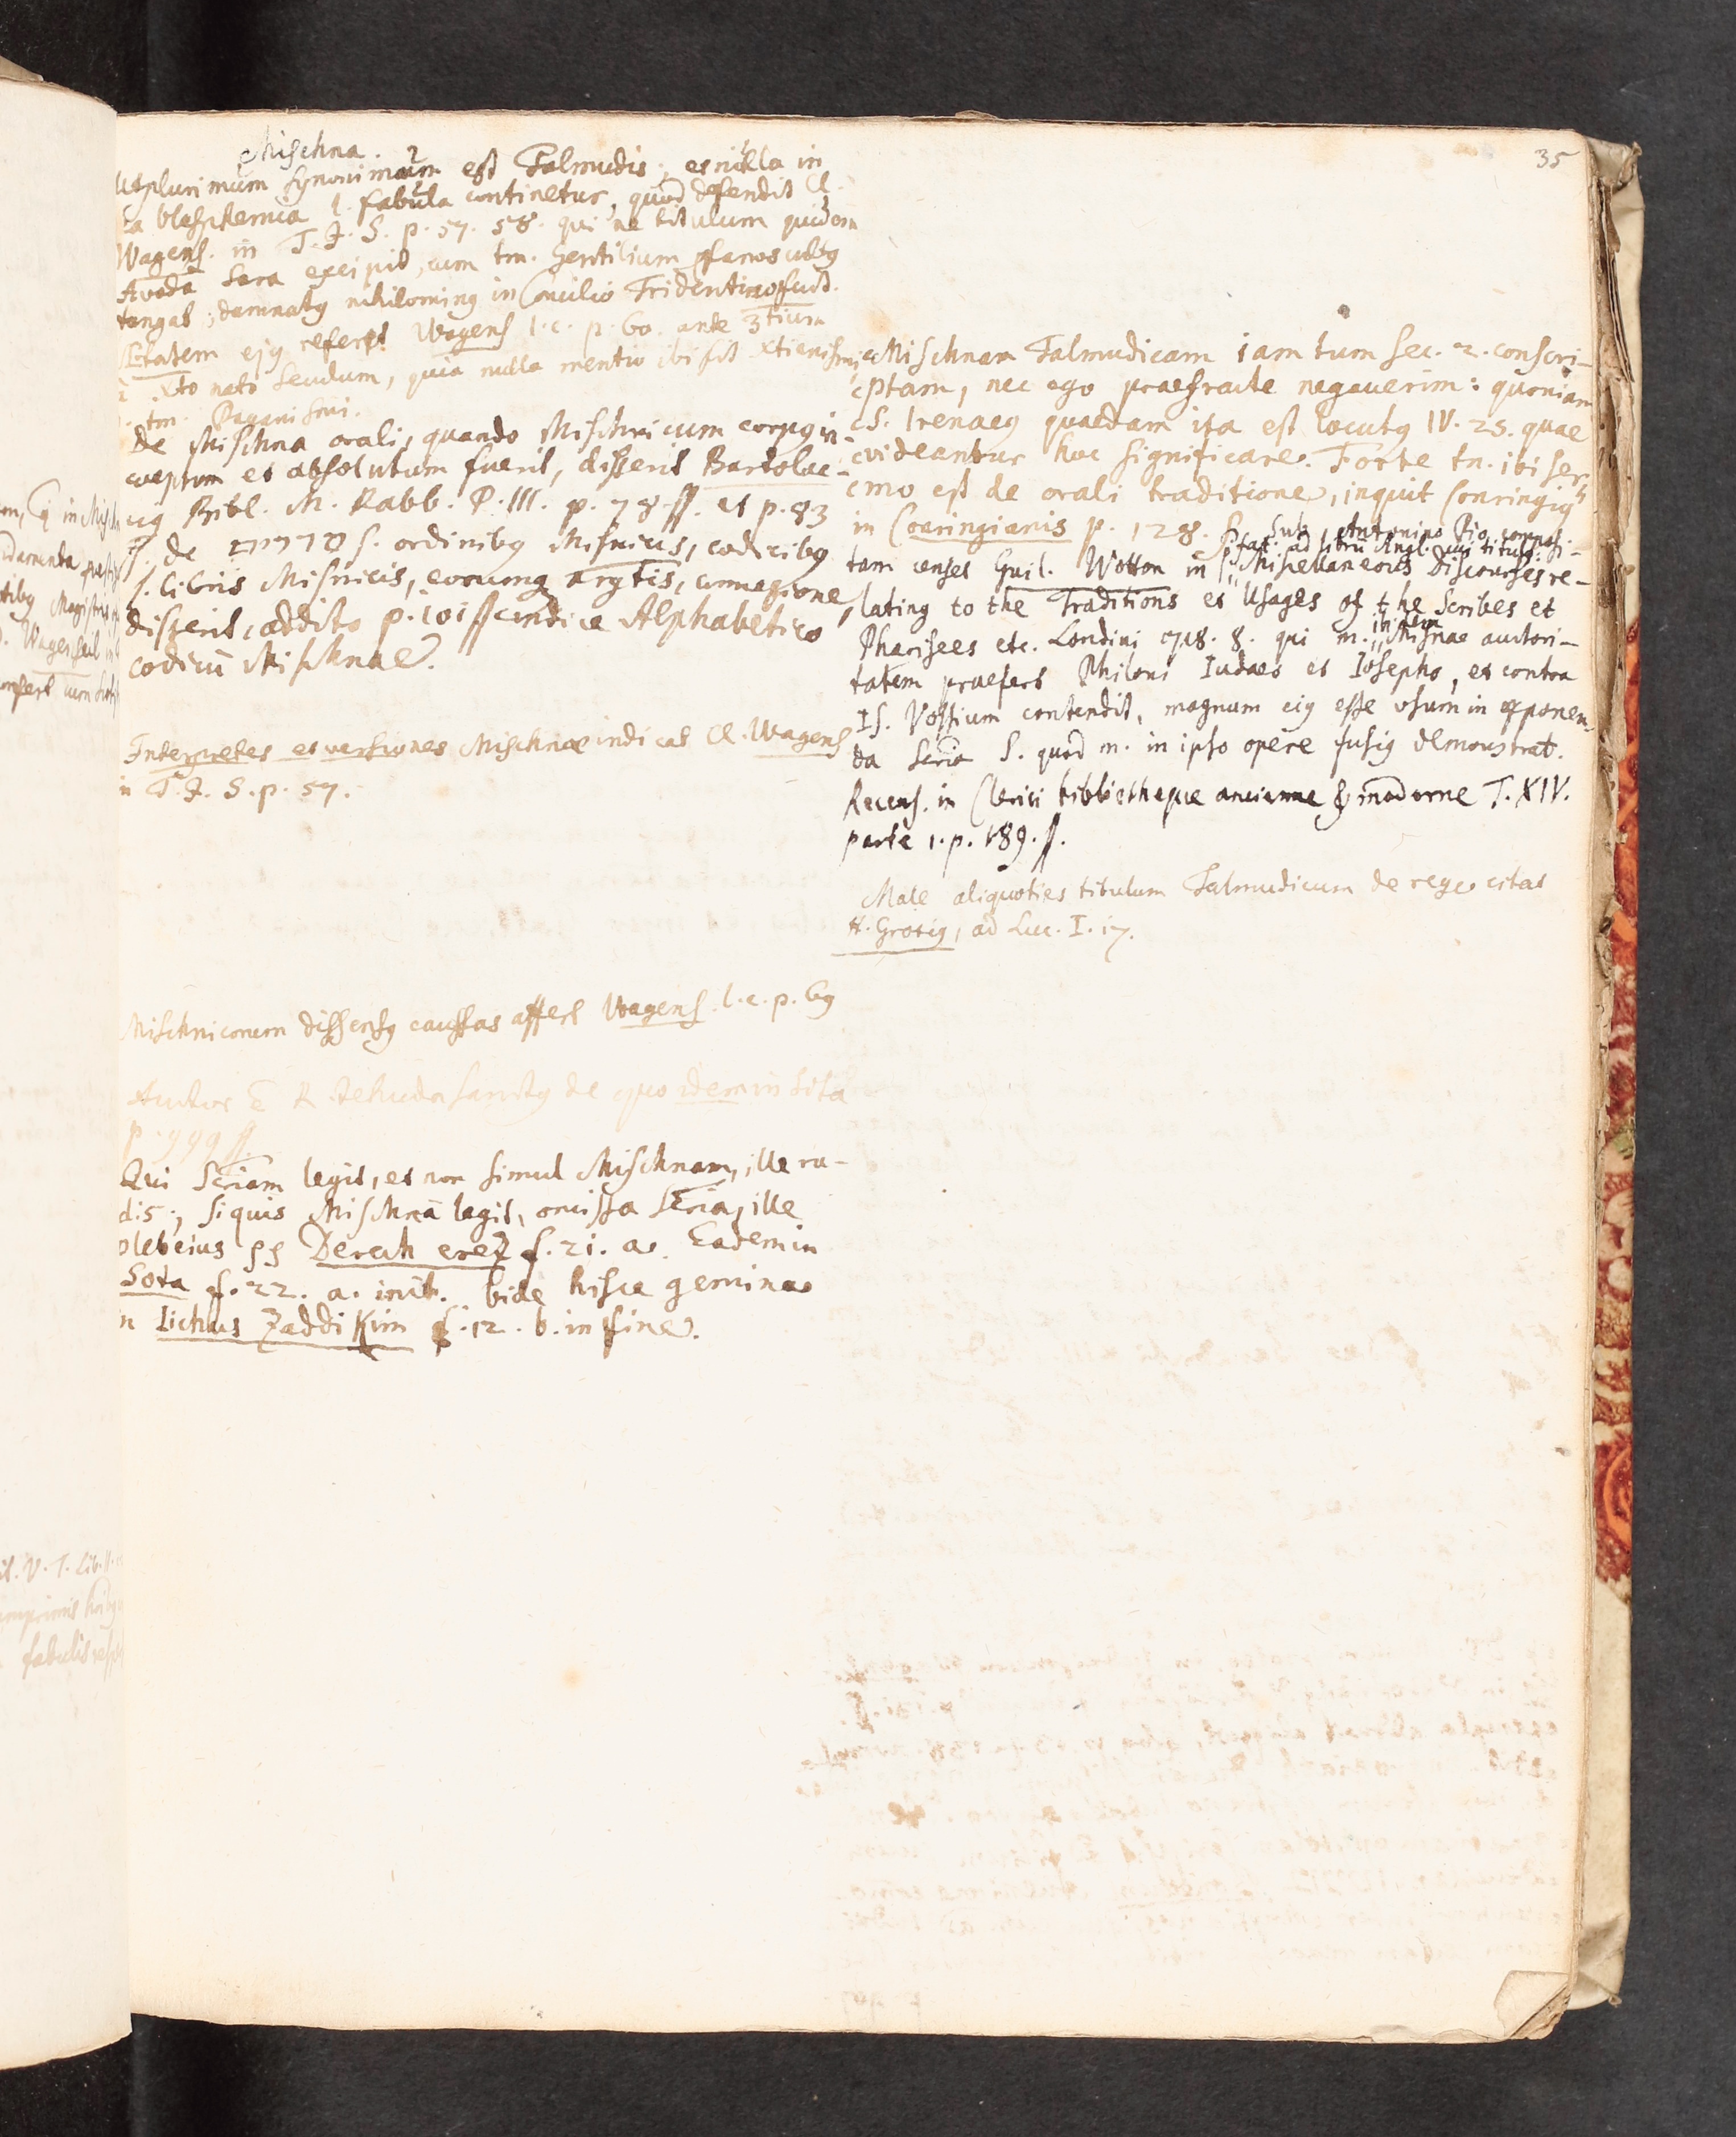 35
Mischna.
Utplurimum synonimum est Talmudis; et nulla in
ea blasphemia l. fabula continetur, quod defendit Cl.
Wagens. in T. I. S. p. 57. 58. qui ne titulum quidem
Avoda Sara excipit, cum tm. Gentilium
tangat; damnatq nihilominq in Concilio Tridentino fuit.
Ætatem ejq refert Wagens l. c. p. 60. ante 3tium
à Xto nato seculum, quia nulla mentio ibi fit Xtianismi,
tm. Paganismi.
De Mischna orali, quando Mischnicum corpq in-
ceptum et absolutum fuerit, disserit Bartolac-
ciq Bibl. M. Rabb. P. III. p. 78. ff. et p. 83
ff. de סדרים s. ordinibq Misnicis, codicibq
s. libris Misnicis, eorumq argtis, connexione
disserit, addito p. 101 ff indice Alphabetico
codicū Mischnae.
Interpretes et versiones Mischnae indicat Cl. Wagens
in T. I. S. p. 57.
Mischnicorum dissensq caussas affert Wagens. l. c. p. 69
Autor ē R. Jehuda sanctq de quo idem in Sota
p. 999 ff.
Qui Scriam legit, et non simul Mischnam, ille ru-
dis; siquis Mischnā legit, omissa Scria, ille
plebeius Derech erez f. 21. a. Eadem in
Sota f. 22. a. init. vide hisce gemina
in Iichus Zaddikim f. 12. b. in fine.
Mischnam Talmudicam iam tum sec. 2. conscri-
ptam, nec ego praefracte negauerim: quoniam
S. Irenaeq quaedam ita est locutq IV. 25. quae
videantur hoc significare. Forte tn. ibi ser-
mo est de orali traditione, inquit Conringiq
in Conringianis p. 128. Sub Antonino Pio composi-
tam censet Guil. Wotton in pfat. ad librū Angl. cui titulq: Miscellaneous Discourses re-
lating to the Traditions et Usages of the Scribes et
Pharisees etc. Londini 1718. 8. qui m. in Misnae auctori-
tatem praefert Philoni Iudaeo et Iosepho, et contra
Is. Vossium contendit, magnum eiq esse vsum in exponen-
da Scria S. quod m. in ipso opere fusiq demonstrat.
Recens. in Clerici bibliotheque ancienne & moderne T. XIV.
parte 1. p. 189. ff.
Male aliquoties titulum Talmudicum de rege citat
H. Grotiq, ad Luc. I. 17.